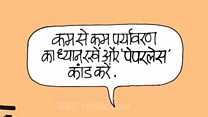 कम से कम पर्यावरण
का ध्यान रखें और 'पेपरलेस'
कांड करें.
BBC HINDI.com